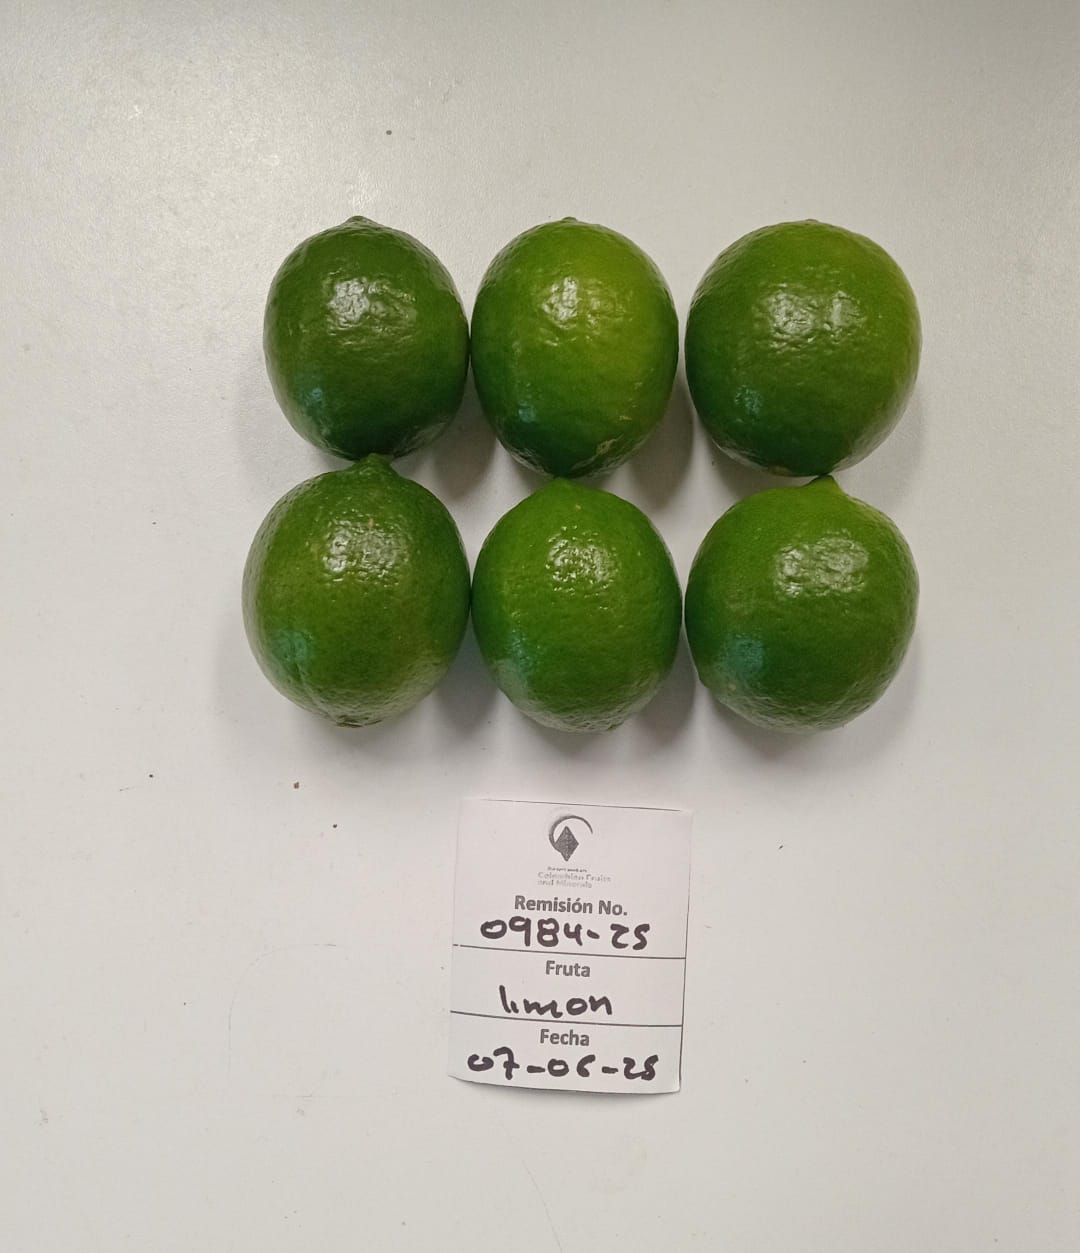 Colombian Fruits
and Minerals
Remisión No.
0984-25
Fruta
limon
Fecha
07-06-25